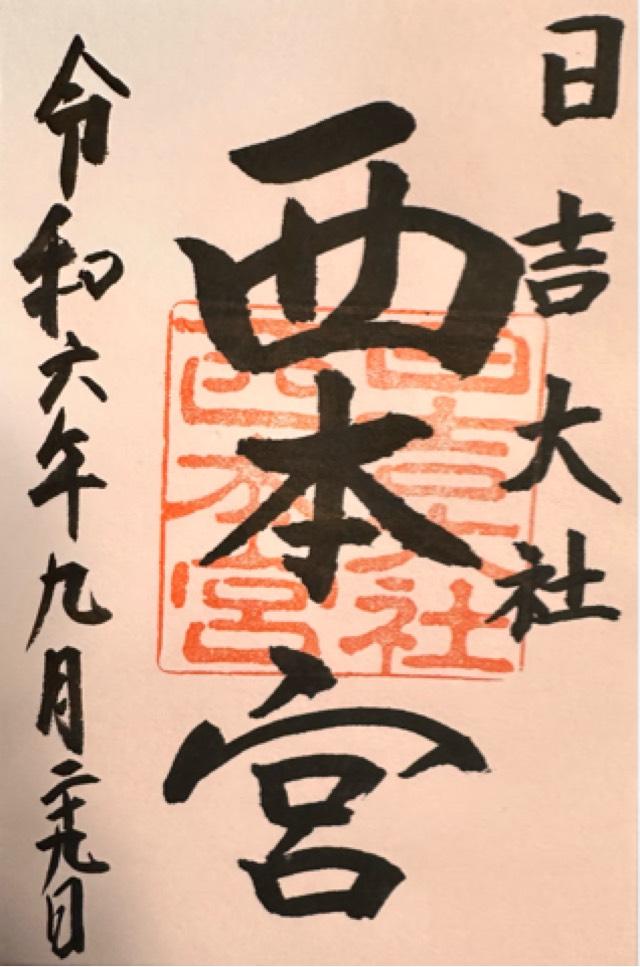 日吉大社
西本宮
日吉大社
西本宮
令和六年九月二十九日